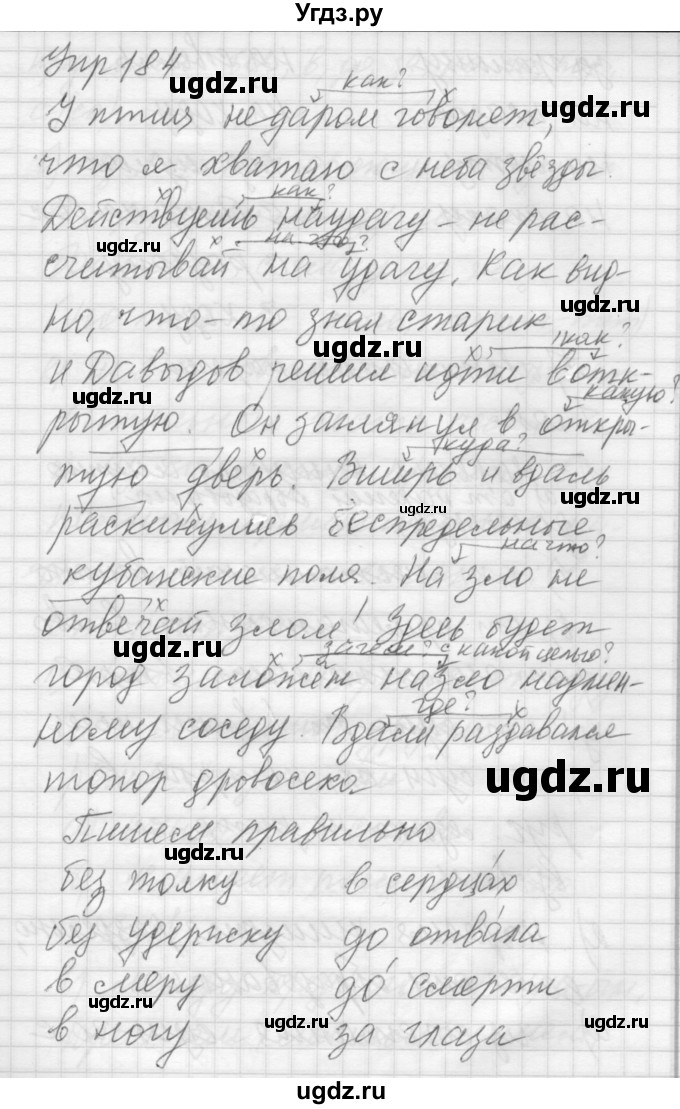 Угдз.ру
Упр 184
ugdz.ru
как?
У птиц недаром говорят,
что я хватаю с неба звёзды.
ugdz.ru
как?
Действуешь наудачу – не рас-
ugdz.ru
на что?
считывай на удачу. Как вид-
ugdz.ru
но, что-то знал старик
ugdz.ru
как?
и Давыдов решил идти в отк-
ugdz.ru
какую?
рытую. Он заглянул в откры-
куда?
тую дверь. Вширь и вдаль
ugdz.ru
ugdz.ru
раскинулись беспредельные
на что?
кубанские поля. На зло не
ugdz.ru
отвечай злом! Здесь будет
ugdz.ru
зачем? с какой целью?
город заложён назло надмен-
где?
ному соседу. Вдали раздавался
ugdz.ru
топор дровосека
ugdz.ru
Пишем правильно
ugdz.ru
без толку в сердцах
без удержу до отвала
в меру до смерти
ugdz.ru
в ногу за глаза
ugdz.ru
ugdz.ru
ugdz.ru